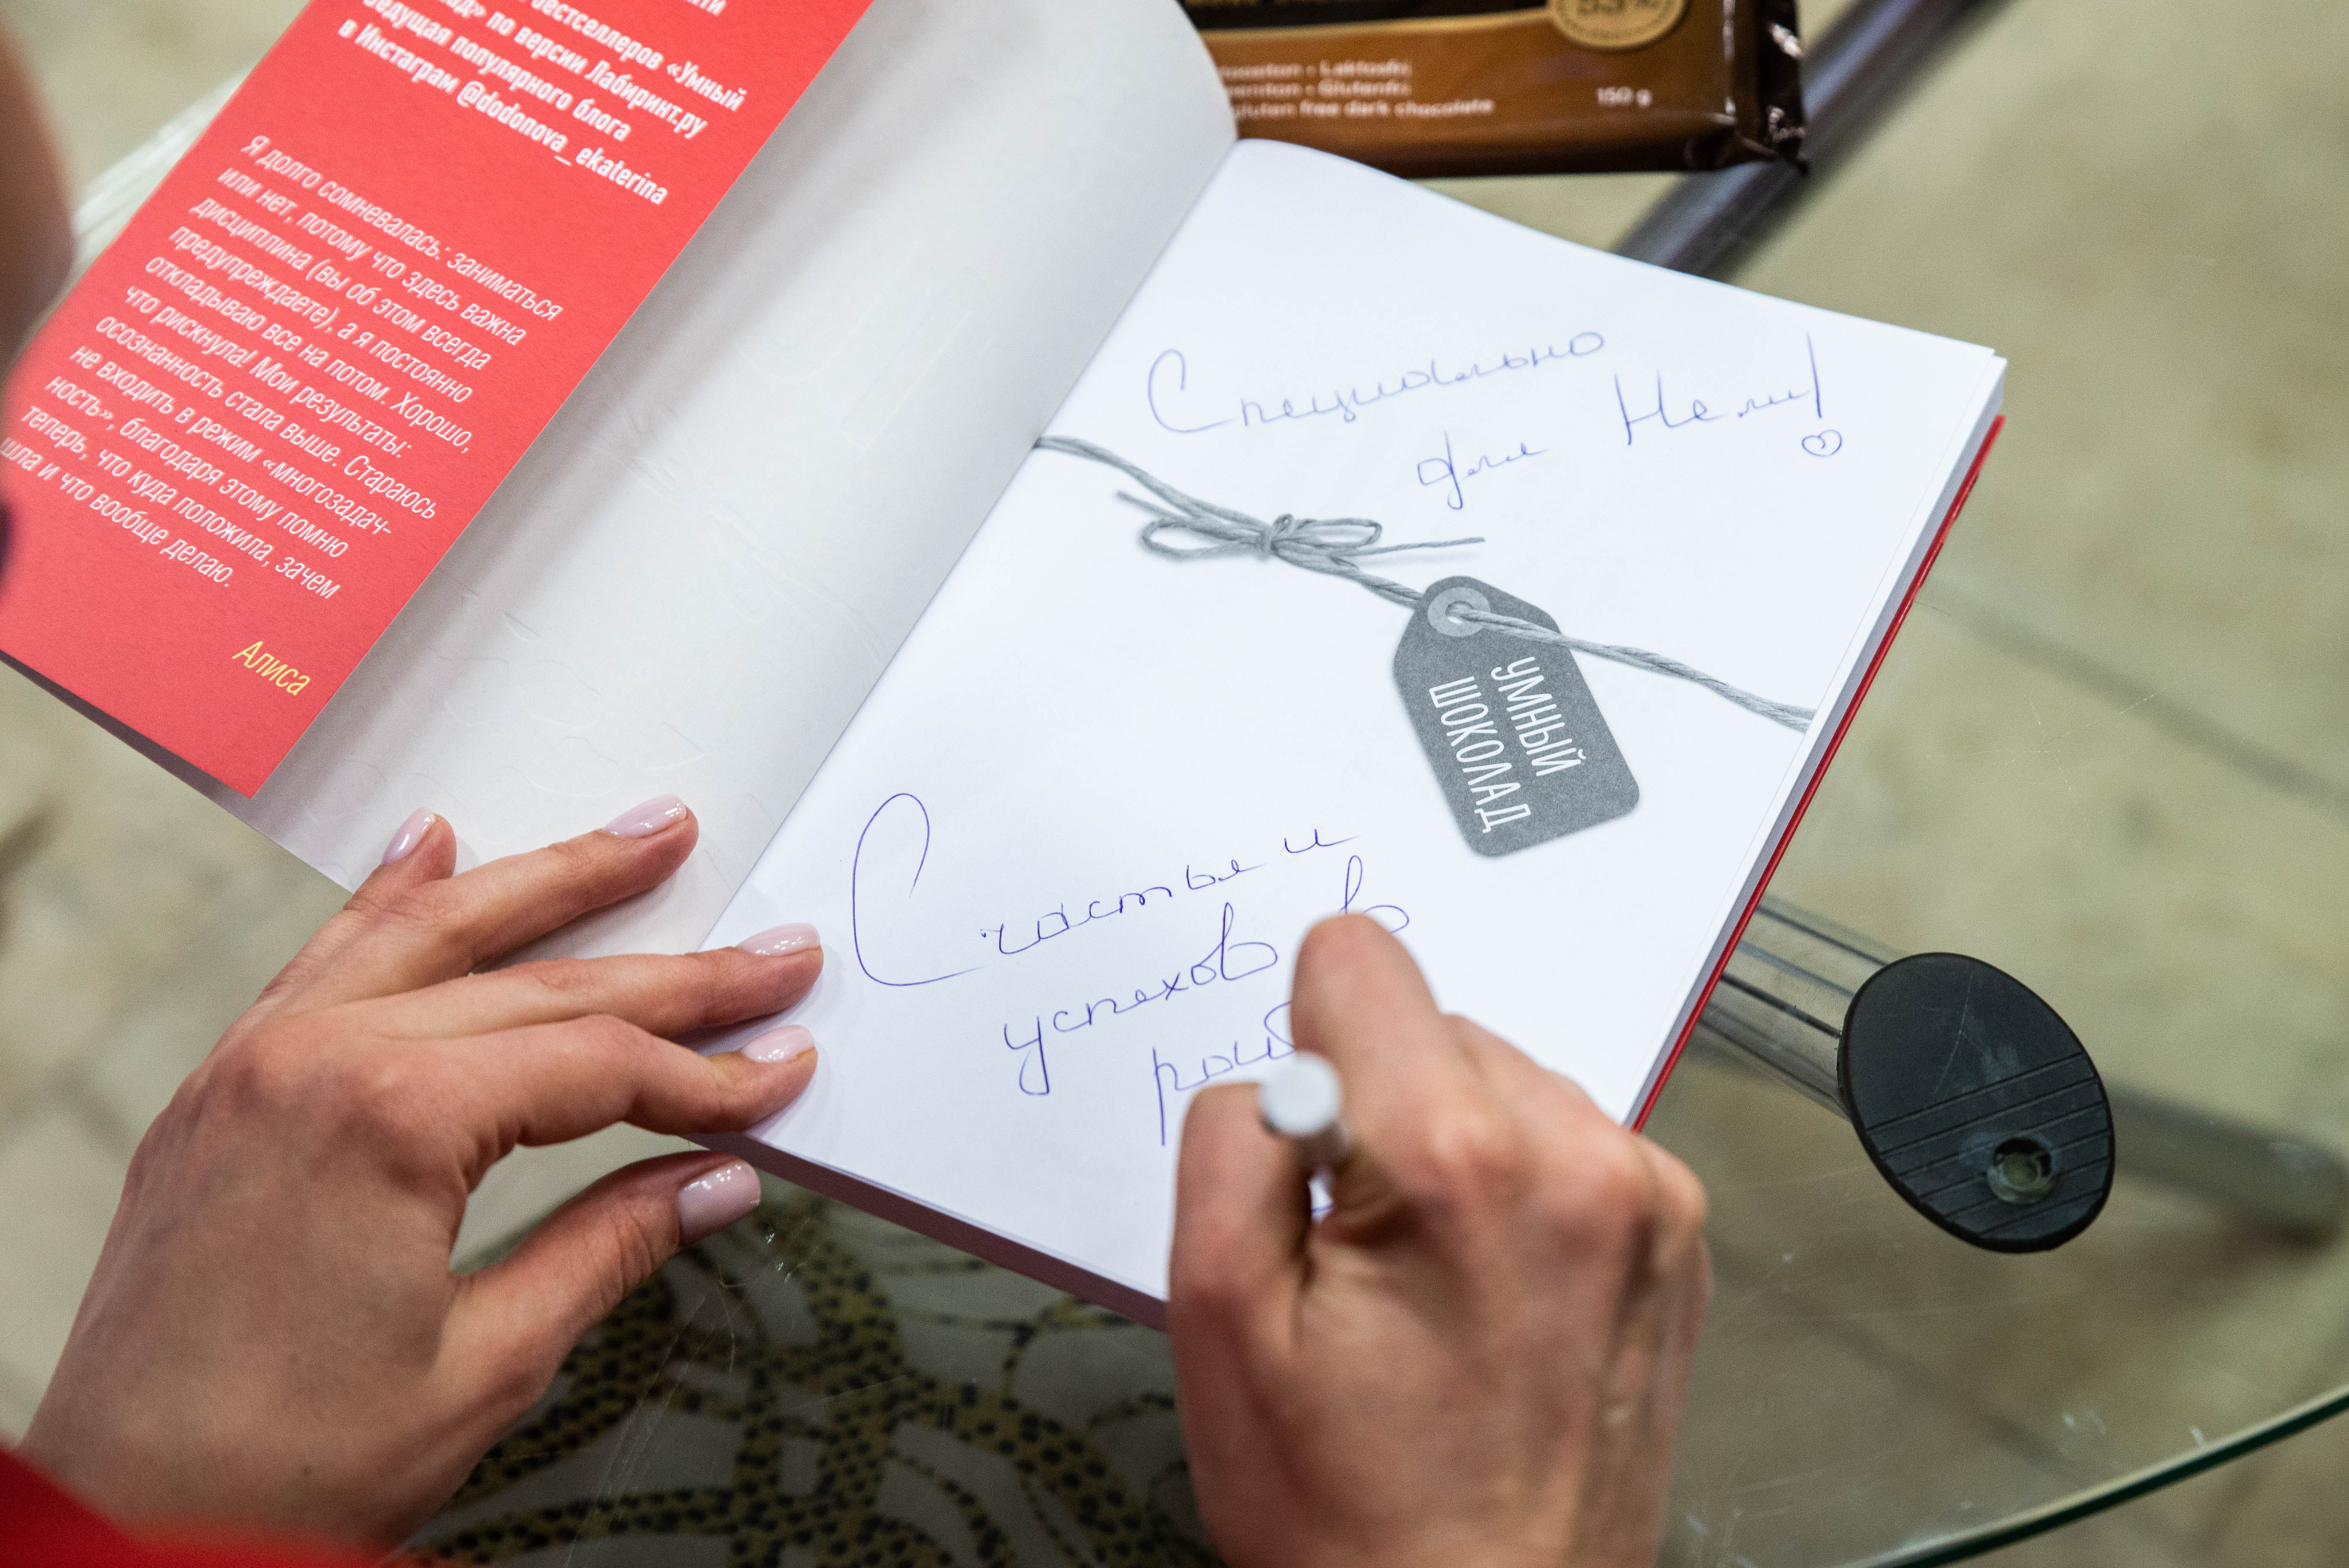 бестселлеров «Умный
по версии Лабиринт.ру
ведущая популярного блога
в Инстаграм @dodonova_ekaterina
Я долго сомневалась: заниматься
или нет, потому что здесь важна
дисциплина (вы об этом всегда
предупреждаете), а я постоянно
откладываю все на потом. Хорошо,
что рискнула! Мои результаты:
осознанность стала выше. Стараюсь
не входить в режим «многозадач-
ность», благодаря этому помню
теперь, что куда положила, зачем
шла и что вообще делаю.
Алиса
Laktosfri
Glutenfri
gluten free dark chocolate
150 g
Специально
для Нели!
УМНЫЙ
ШОКОЛАД
Счастья и
успехов в